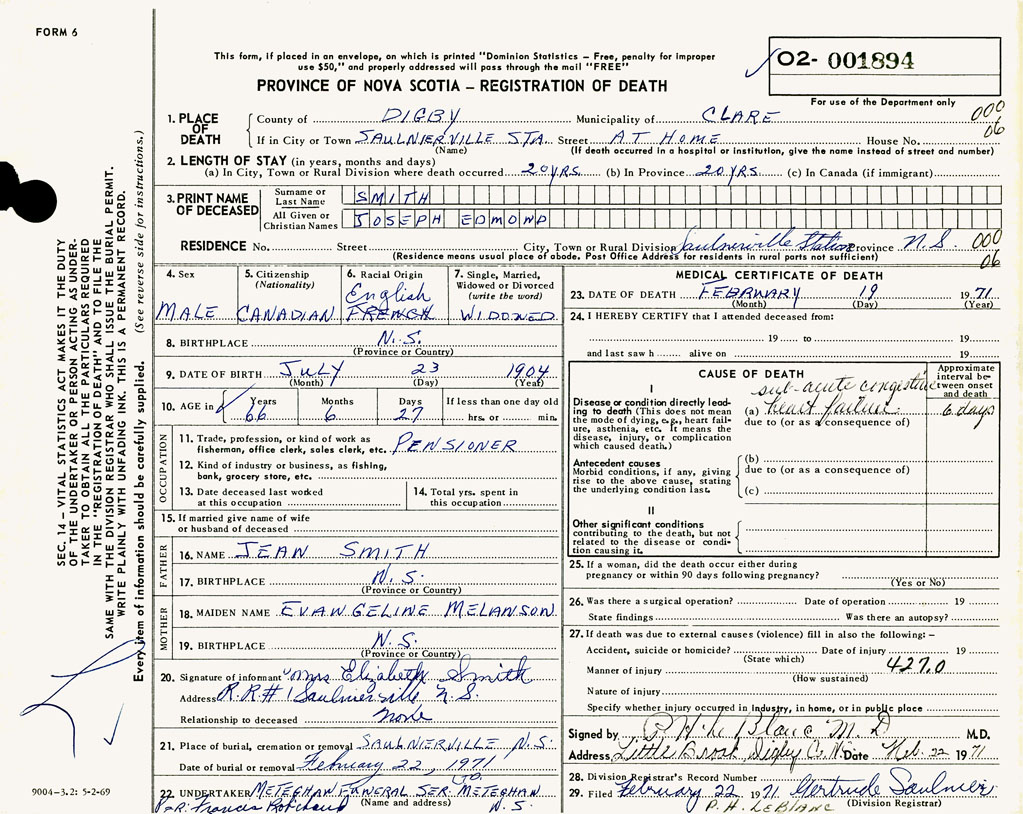 FORM 6
This form, if placed in an envelope, on which is printed "Dominion Statistics – Free, penalty for improper
use $50," and properly addressed will pass through the mail "FREE"
PROVINCE OF NOVA SCOTIA – REGISTRATION OF DEATH
02- 001894
For use of the Department only
SEC. 14 – VITAL STATISTICS ACT MAKES IT THE DUTY
OF THE UNDERTAKER OR PERSON ACTING AS UNDER-
TAKER TO OBTAIN ALL THE PARTICULARS REQUIRED
IN THE "REGISTRATION OF DEATH" AND TO FILE THE
SAME WITH THE DIVISION REGISTRAR WHO SHALL ISSUE THE BURIAL PERMIT.
WRITE PLAINLY WITH UNFADING INK. THIS IS A PERMANENT RECORD.
Every item of information should be carefully supplied. (See reverse side for instructions.)
1. PLACE OF DEATH County of DIGBY Municipality of CLARE 000
06
If in City or Town SAULNIERVILLE STA. Street AT HOME House No.
(Name) (If death occurred in a hospital or institution, give the name instead of street and number)
2. LENGTH OF STAY (in years, months and days)
(a) In City, Town or Rural Division where death occurred 20 YRS. (b) In Province 20 YRS. (c) In Canada (if immigrant)
3. PRINT NAME OF DECEASED Surname or Last Name SMITH
All Given or Christian Names JOSEPH EDMOND
RESIDENCE No. Street City, Town or Rural Division Saulnierville Station Province N.S. 000
06
(Residence means usual place of abode. Post Office Address for residents in rural parts not sufficient)
4. Sex MALE
5. Citizenship (Nationality) CANADIAN
6. Racial Origin English FRENCH
7. Single, Married, Widowed or Divorced (write the word) WIDOWED
8. BIRTHPLACE N.S.
(Province or Country)
9. DATE OF BIRTH JULY 23 1904
(Month) (Day) (Year)
10. AGE in Years 66 Months 6 Days 27 If less than one day old
hrs. or min.
OCCUPATION
11. Trade, profession, or kind of work as
fisherman, office clerk, sales clerk, etc. PENSIONER
12. Kind of industry or business, as fishing,
bank, grocery store, etc.
13. Date deceased last worked
at this occupation
14. Total yrs. spent in
this occupation
15. If married give name of wife
or husband of deceased
FATHER
16. NAME JEAN SMITH
17. BIRTHPLACE N.S.
(Province or Country)
MOTHER
18. MAIDEN NAME EVANGELINE MELANSON
19. BIRTHPLACE N.S.
(Province or Country)
20. Signature of informant Mrs Elizabeth Smith
Address R.R#1 Saulnierville N.S.
Relationship to deceased none
21. Place of burial, cremation or removal SAULNIERVILLE N.S.
Date of burial or removal February 22, 1971
22. UNDERTAKER METEGHAN FUNERAL SER. LTD. METEGHAN
(Name and address) N.S.
Francis Robichaud
9004-3.2: 5-2-69
MEDICAL CERTIFICATE OF DEATH
23. DATE OF DEATH FEBRUARY 19 1971
(Month) (Day) (Year)
24. I HEREBY CERTIFY that I attended deceased from:
19 to 19
and last saw h alive on 19
CAUSE OF DEATH
Approximate interval between onset and death
I
Disease or condition directly leading to death (This does not mean the mode of dying, e.g., heart failure, asthenia, etc. It means the disease, injury, or complication which caused death.)
(a) sub-acute congestive heart failure 6 days
due to (or as a consequence of)
Antecedent causes
Morbid conditions, if any, giving rise to the above cause, stating the underlying condition last.
(b)
due to (or as a consequence of)
(c)
II
Other significant conditions
contributing to the death, but not
related to the disease or condi-
tion causing it.
25. If a woman, did the death occur either during
pregnancy or within 90 days following pregnancy?
(Yes or No)
26. Was there a surgical operation? Date of operation 19
State findings Was there an autopsy?
27. If death was due to external causes (violence) fill in also the following: –
Accident, suicide or homicide? Date of injury 19
(State which)
Manner of injury 427.0
(How sustained)
Nature of injury
Specify whether injury occurred in industry, in home, or in public place
Signed by P H Le Blanc M.D M.D.
Address Little Brook, Digby Co. N.S. Date Feb. 22 1971
28. Division Registrar's Record Number
29. Filed February 22 1971 Gertrude Saulnier
P.H. LeBLANC (Division Registrar)